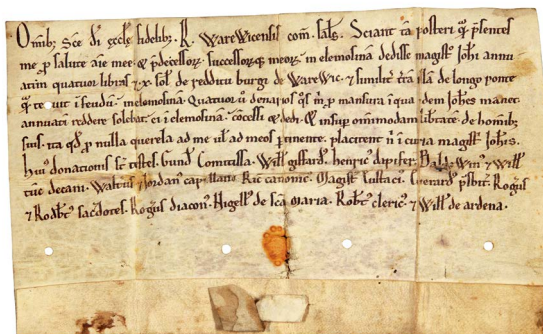 Omnib; Sce di eccle fidelib;. R. Warewicensis com. sale. Sciant ta posteri qm psentes
me p salute aie mee. & pdecessor; successorq; meor; in elemosina dedisse magistro Johi annu
atim quatuor libras & x. sol. de redditu burgi de Warewic. & similit tra illa de longo ponte
tenuit in feudu in elemosina. Quatuor u denarios qs m p mansura i qua dem Johes manet
annuati reddere solebat. ei i elemosina cocessi & dedi. & insup omnimoda libtate de homib;
suis. ita qd p nulla querela ad me ul ad meos ptinente. placitent n i curia magistri Johis.
hui donationis st testes. Gund Comitissa. Will giffard. henric dapifer. & Will
decani. Walt & Jordan capellano Ric canonic. Magist Eustaci. Gerard psbit. Rogus
& Rodbt sacdotes. Rogus diacon. Nigell de sca maria. Robt cleric & Will de ardena.